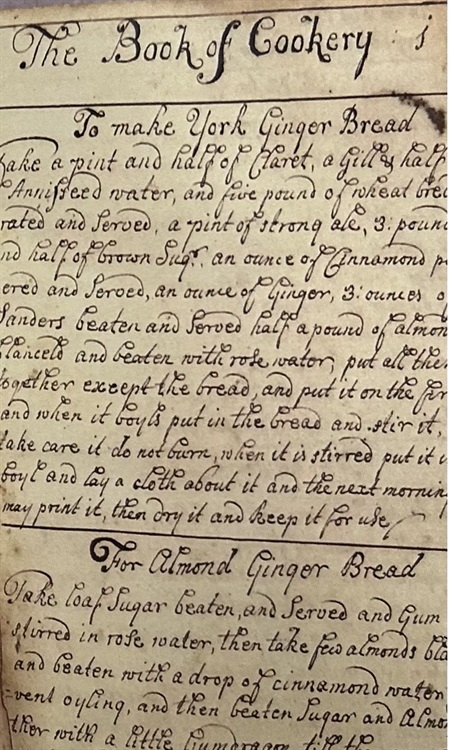 The Book of Cookery : 1
To make York Ginger Bread
Take a pint and half of Claret, a Gill & half
Annisseed water, and five pound of wheat brea
rated and Served, a pint of strong ale, 3: pound
nd half of brown Sugr. an ounce of Cinnamond po
ered and Served, an ounce of Ginger, 3: ounces o
Sanders beaten and Served half a pound of almon
blanceld and beaten with rose water, put all thes
together except the bread, and put it on the fir
and when it boyls put in the bread and stir it,
take care it do not burn, when it is stirred put it i
boyl and lay a cloth about it and the next mornin
may print it, then dry it and keep it for use
For Almond Ginger Bread
Take loaf Sugar beaten, and Served and Gum
stirred in rose water, then take few almonds bla
and beaten with a drop of cinnamond water
=vent oyling, and then beaten Sugar and Almo
ther with a little Gumdragon till the